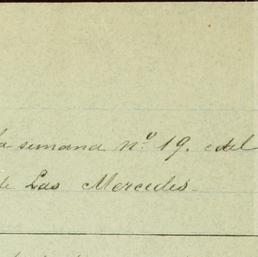 la semana nº 19. del
de Las Mercedes.